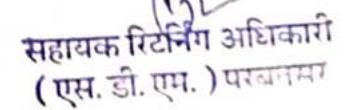 सहायक रिटर्निंग अधिकारी
(एस. डी. एम. ) परबतसर